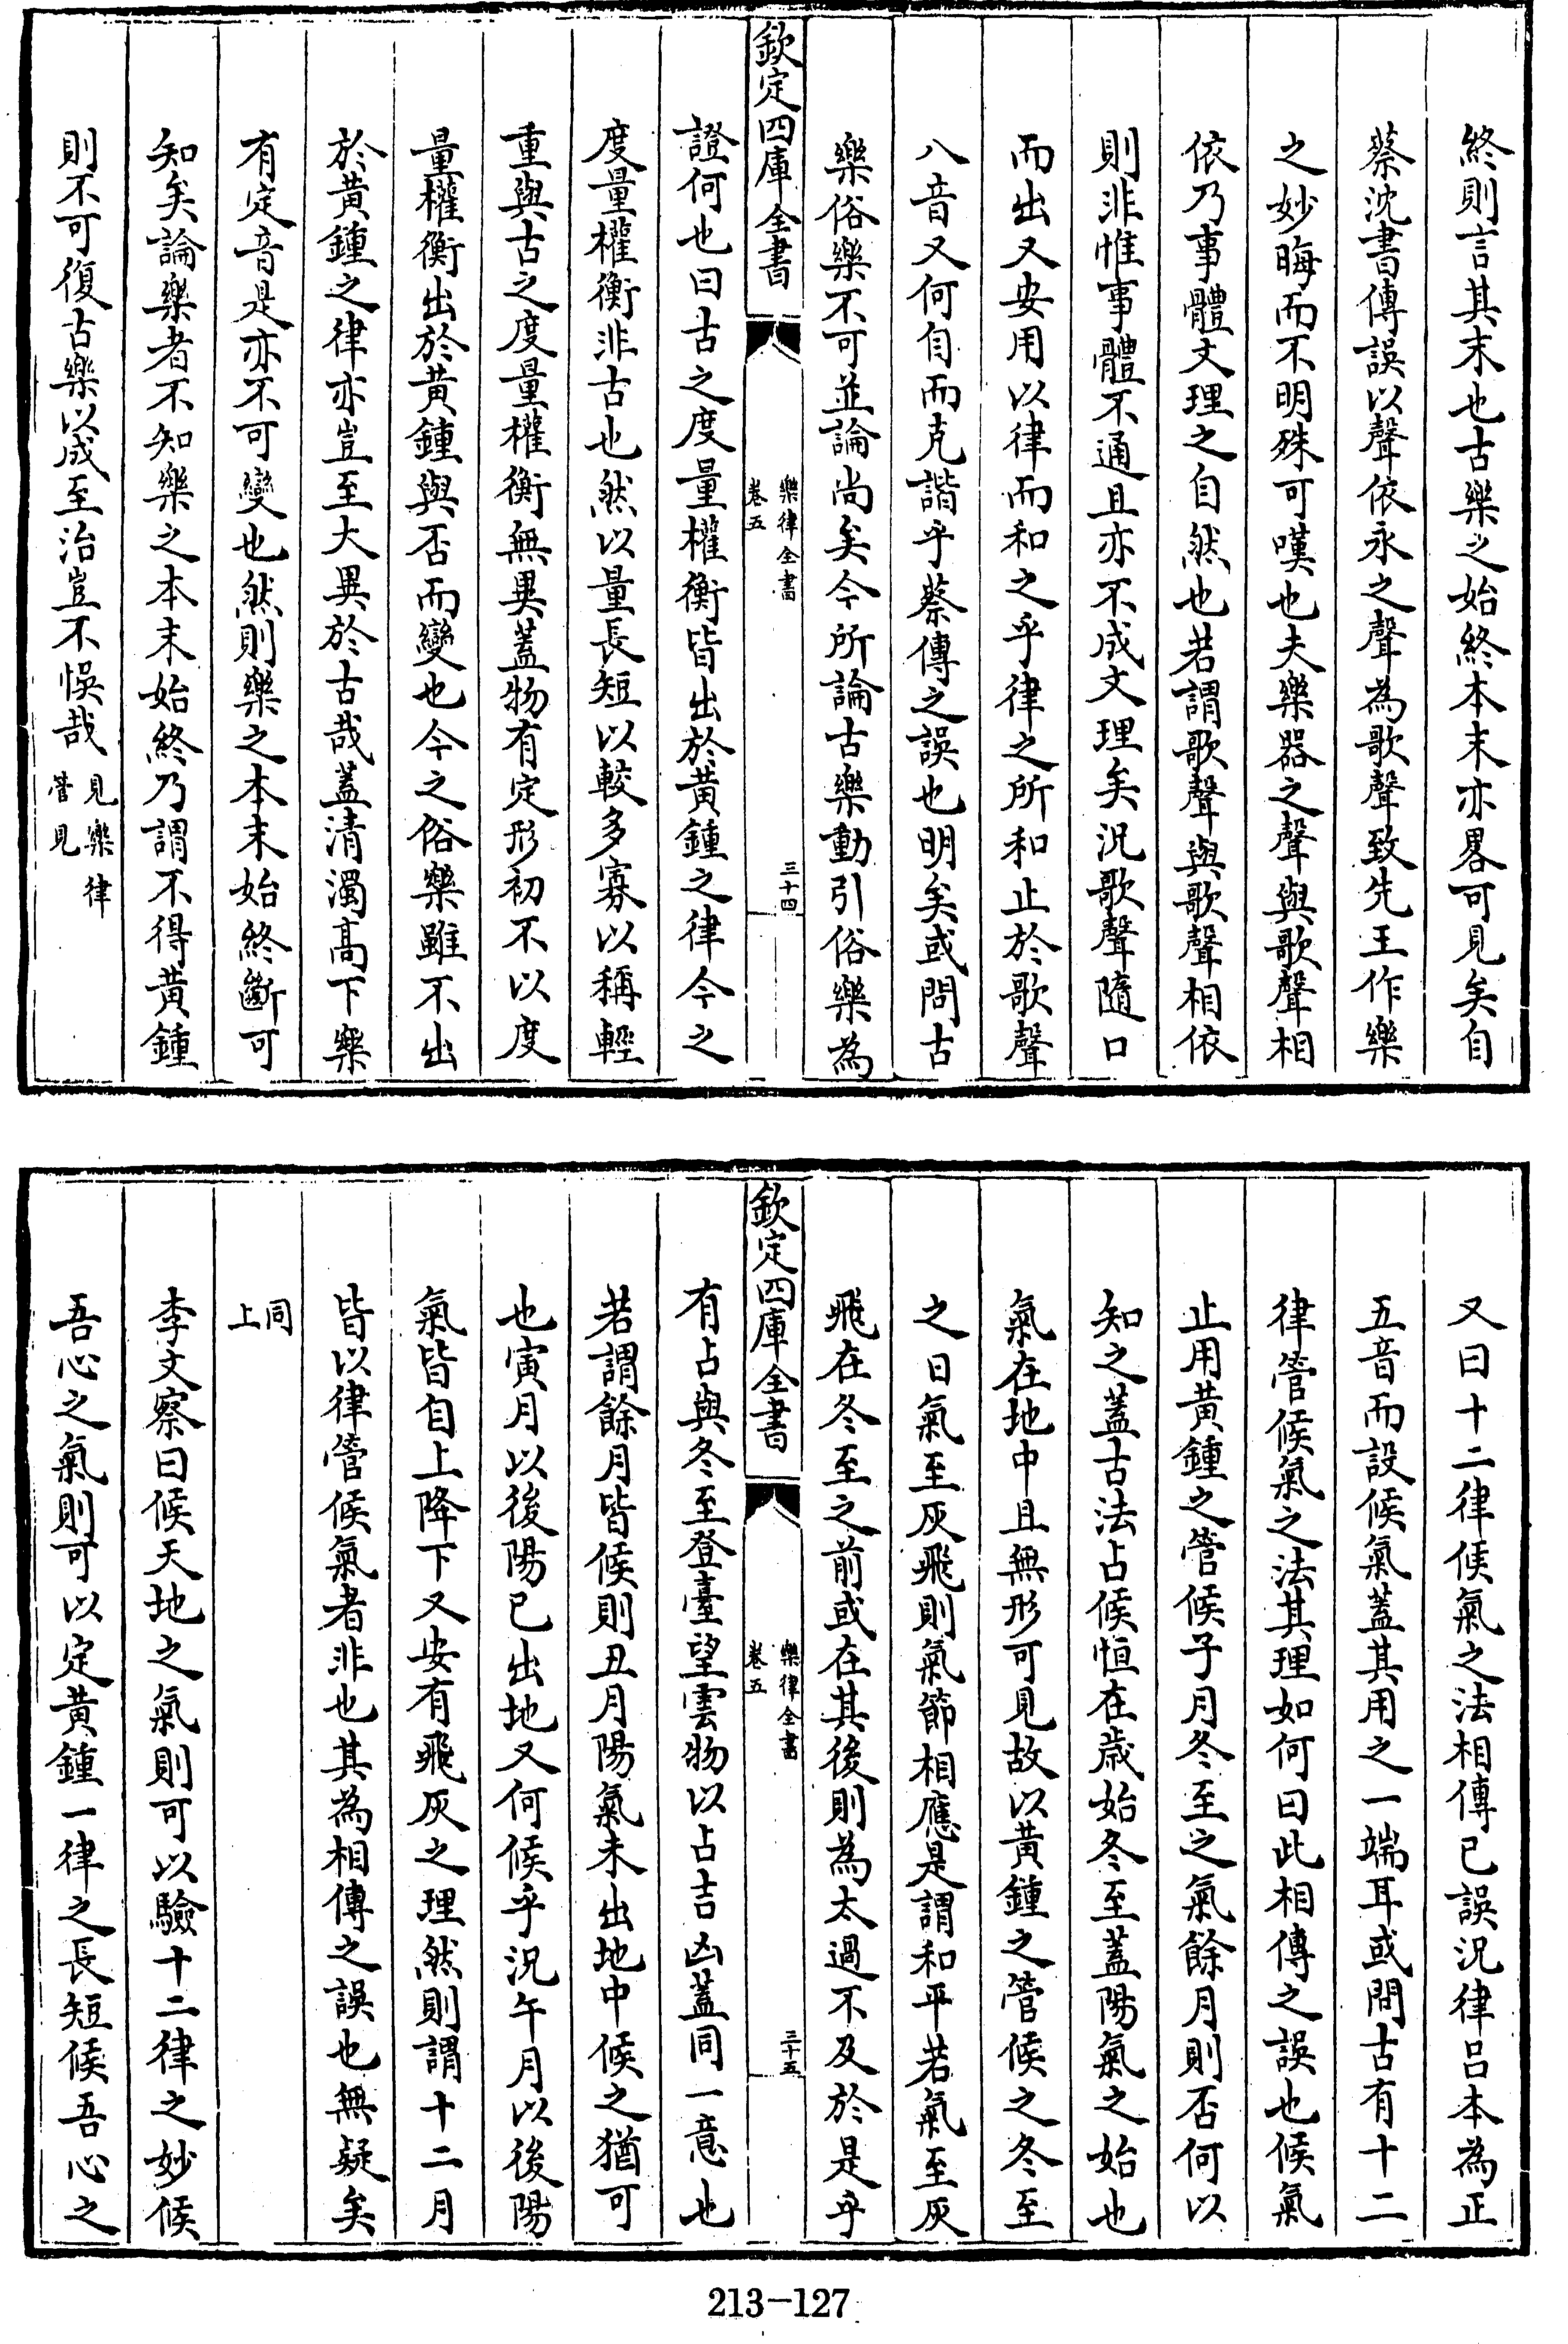 終則言其末也古樂之始終本末亦畧可見矣自
蔡沈書傳誤以聲依永之聲為歌聲致先王作樂
之妙晦而不明殊可嘆也夫樂器之聲與歌聲相
依乃事體文理之自然也若謂歌聲與歌聲相依
則非惟事體不通且亦不成文理矣況歌聲隨口
而出又安用以律而和之乎律之所和止於歌聲
八音又何自而克諧乎蔡傳之誤也明矣或問古
樂俗樂不可並論尚矣今所論古樂動引俗樂為
欽定四庫全書
樂律全書
卷五
三十四
證何也曰古之度量權衡皆出於黃鍾之律今之
度量權衡非古也然以量長短以較多寡以稱輕
重與古之度量權衡無異蓋物有定形初不以度
量權衡出於黃鍾與否而變也今之俗樂雖不出
於黃鍾之律亦豈至大異於古哉蓋清濁高下樂
有定音是亦不可變也然則樂之本末始終斷可
知矣論樂者不知樂之本末始終乃謂不得黃鍾
則不可復古樂以成至治豈不悞哉
見樂律
管見
又曰十二律候氣之法相傳已誤況律呂本為正
五音而設候氣蓋其用之一端耳或問古有十二
律管候氣之法其理如何曰此相傳之誤也候氣
止用黃鍾之管候子月冬至之氣餘月則否何以
知之蓋古法占候恒在歲始冬至蓋陽氣之始也
氣在地中且無形可見故以黃鍾之管候之冬至
之日氣至灰飛則氣節相應是謂和平若氣至灰
飛在冬至之前或在其後則為太過不及於是乎
欽定四庫全書
樂律全書
卷五
三十五
有占與冬至登臺望雲物以占吉凶蓋同一意也
若謂餘月皆候則丑月陽氣未出地中候之猶可
也寅月以後陽已出地又何候乎況午月以後陽
氣皆自上降下又安有飛灰之理然則謂十二月
皆以律管候氣者非也其為相傳之誤也無疑矣
同
上
李文察曰候天地之氣則可以驗十二律之妙候
吾心之氣則可以定黃鍾一律之長短候吾心之
213-127